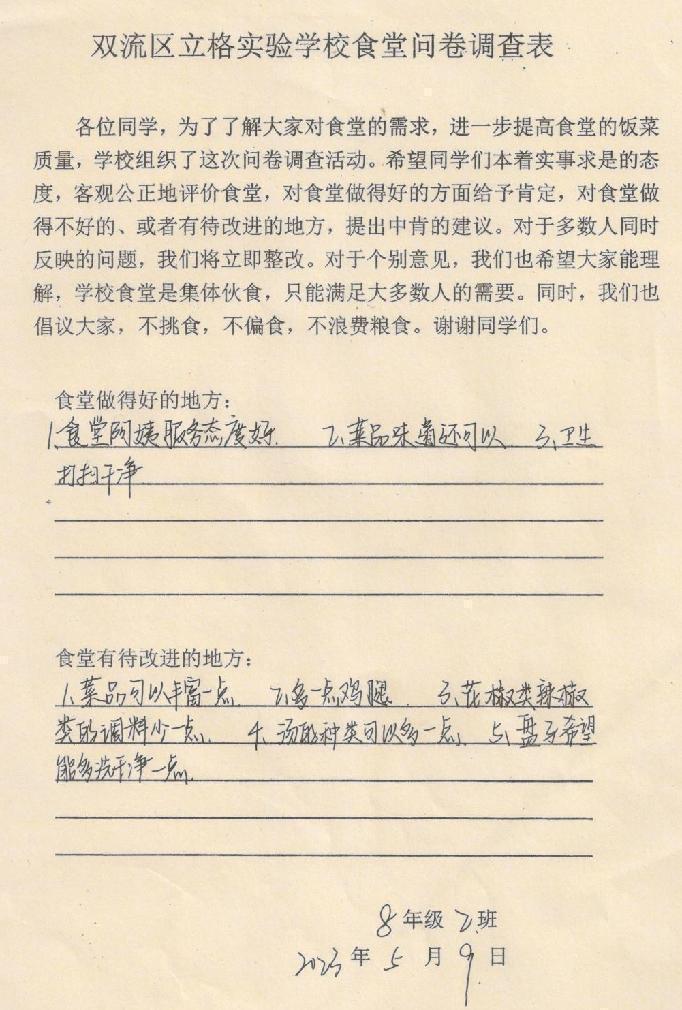 双流区立格实验学校食堂问卷调查表
各位同学，为了了解大家对食堂的需求，进一步提高食堂的饭菜
质量，学校组织了这次问卷调查活动。希望同学们本着实事求是的态
度，客观公正地评价食堂，对食堂做得好的方面给予肯定，对食堂做
得不好的、或者有待改进的地方，提出中肯的建议。对于多数人同时
反映的问题，我们将立即整改。对于个别意见，我们也希望大家能理
解，学校食堂是集体伙食，只能满足大多数人的需要。同时，我们也
倡议大家，不挑食，不偏食，不浪费粮食。谢谢同学们。
食堂做得好的地方：
1、食堂阿姨服务态度好. 2、菜品味道还可以 3、卫生
打扫干净
食堂有待改进的地方：
1、菜品可以丰富一点. 2、多一点鸡腿. 3、花椒类辣椒
类的调料少一点、 4、汤的种类可以多一点、 5、盘子希望
能多洗干净一点、
8年级2班
2023年5月9日